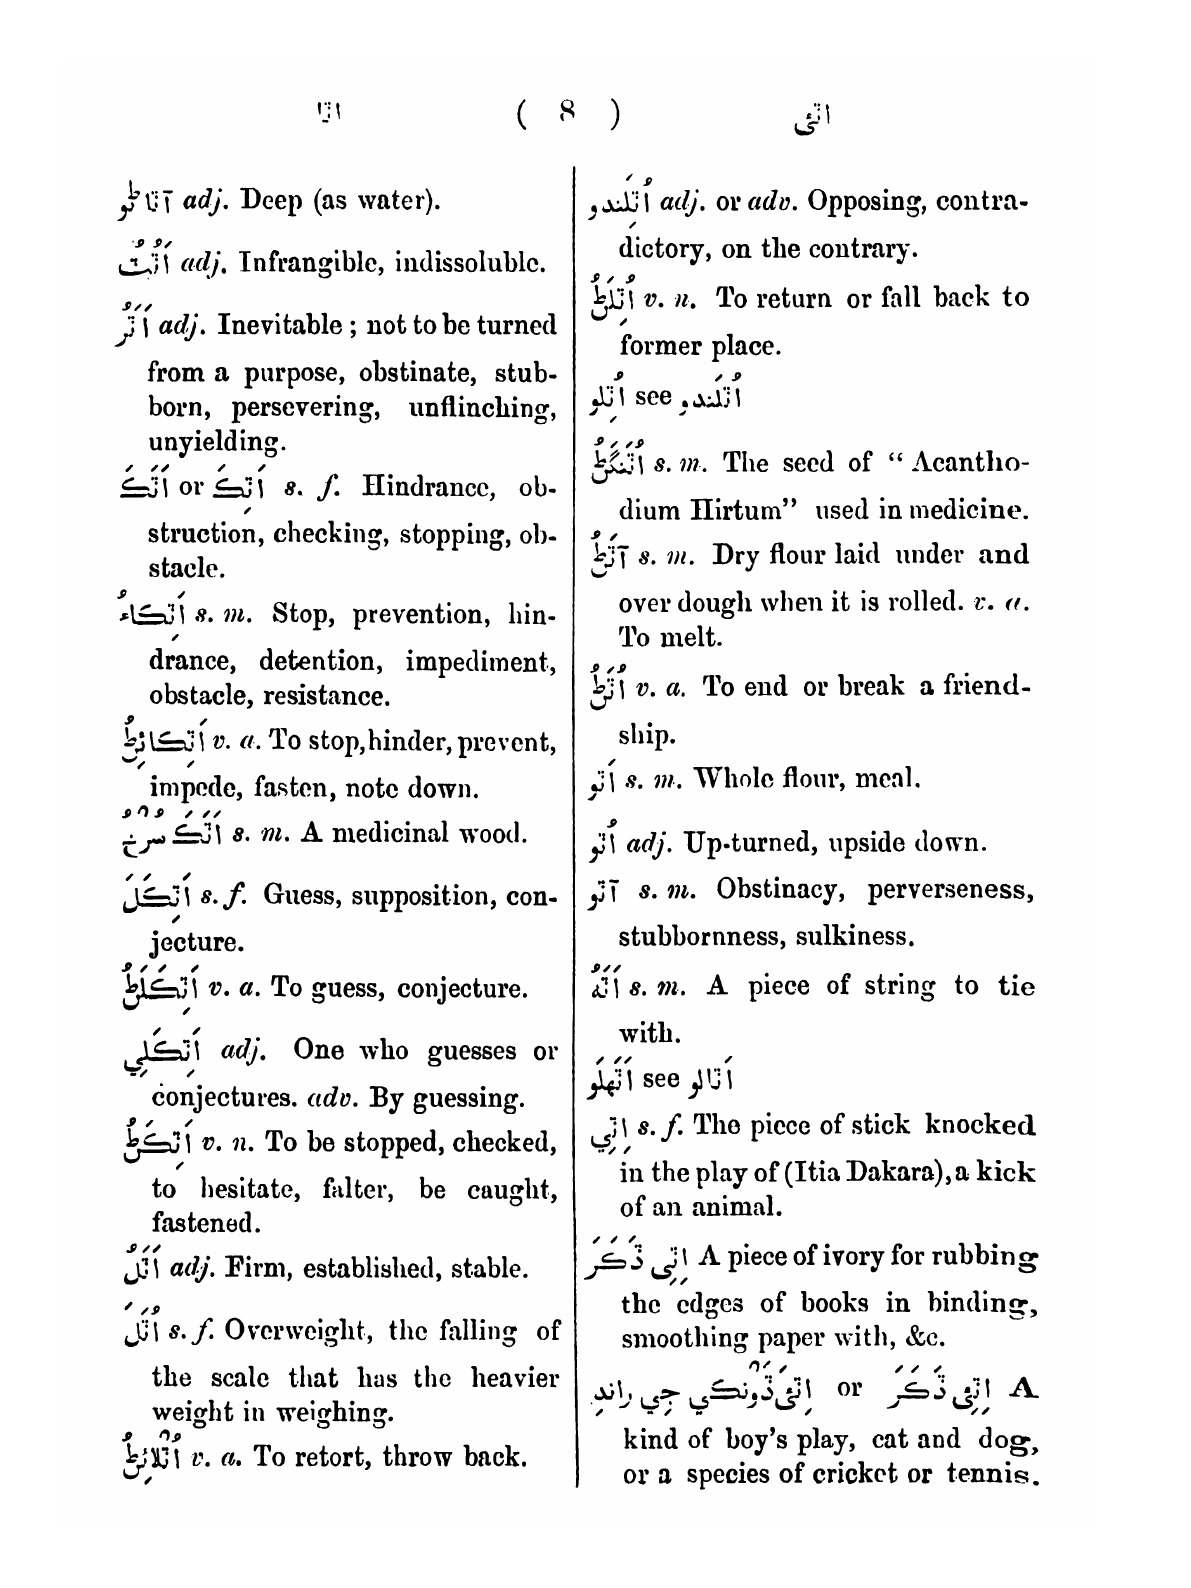 اٽا ( 8 ) اٽي
آٽالو adj. Deep (as water).
adj. Infrangible, indissoluble.
اَٽَرُ adj. Inevitable ; not to be turned
from a purpose, obstinate, stub-
born, persevering, unflinching,
unyielding.
اَٽَڪَ or اَٽِڪَ s. f. Hindrance, ob-
struction, checking, stopping, ob-
stacle.
اَٽِڪاءُ s. m. Stop, prevention, hin-
drance, detention, impediment,
obstacle, resistance.
اَٽِڪائِڻُ v. a. To stop, hinder, prevent,
impede, fasten, note down.
s. m. A medicinal wood.
اَٽِڪَلَ s. f. Guess, supposition, con-
jecture.
اَٽِڪَلَڻُ v. a. To guess, conjecture.
اَٽِڪَلِي adj. One who guesses or
conjectures. adv. By guessing.
اَٽِڪَڻُ v. n. To be stopped, checked,
to hesitate, falter, be caught,
fastened.
اَٽَلُ adj. Firm, established, stable.
اُٽَلَ s. f. Overweight, the falling of
the scale that has the heavier
weight in weighing.
اُٽلائِڻُ v. a. To retort, throw back.
adj. or adv. Opposing, contra-
dictory, on the contrary.
اُٽِلَڻُ v. n. To return or fall back to
former place.
اُٽِلو see
s. m. The seed of “ Acantho-
dium Hirtum” used in medicine.
آٽَڻُ s. m. Dry flour laid under and
over dough when it is rolled. v. a.
To melt.
اُٽَڻُ v. a. To end or break a friend-
ship.
اَٽو s. m. Whole flour, meal.
اُٽو adj. Up-turned, upside down.
آٽو s. m. Obstinacy, perverseness,
stubbornness, sulkiness.
s. m. A piece of string to tie
with.
see اَٽالو
اِٽِي s. f. The piece of stick knocked
in the play of (Itia Dakara), a kick
of an animal.
A piece of ivory for rubbing
the edges of books in binding,
smoothing paper with, &c.
or A
kind of boy’s play, cat and dog,
or a species of cricket or tennis.